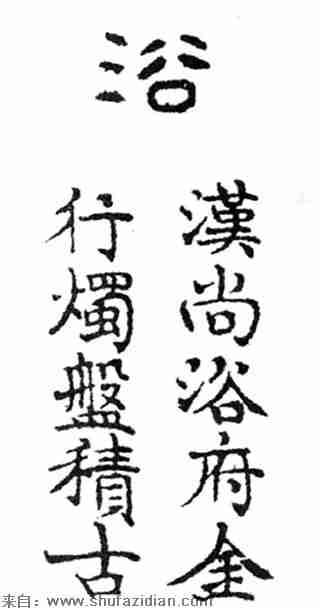 浴
漢尚浴府金
行燭盤積古
来自：www.shufazidian.com